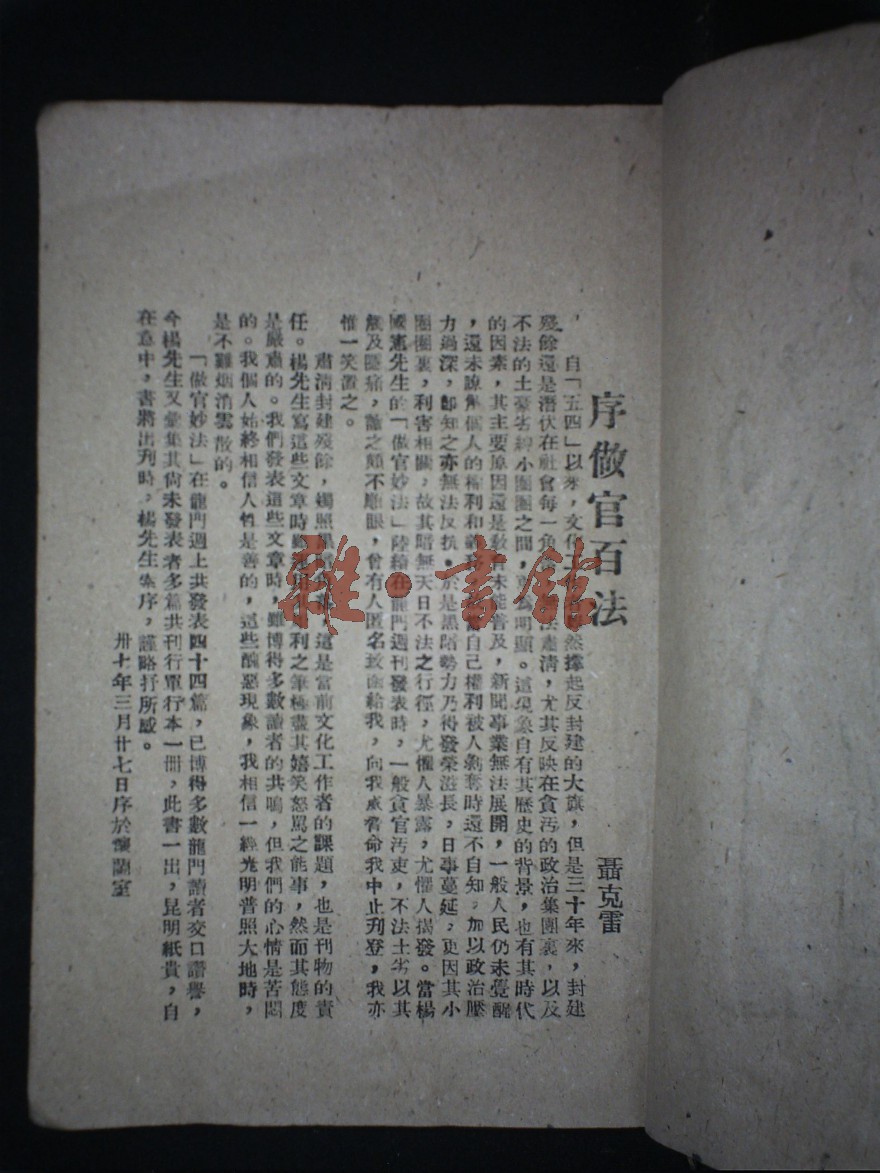 序做官百法
聶克雷
，自「五四」以來，文化工作者然撐起反封建的大旗，但是三十年來，封建
殘餘還是潛伏在社會每一角法肅清，尤其反映在貪污的政治集團裏，以及
不法的土豪劣紳小圈圈之間，更為明顯。這現象自有其歷史的背景，也有其時代
的因素，其主要原因還是教育未能普及，新聞事業無法展開，一般人民仍未覺醒
，還未瞭解個人的權利和自己權利被人剝奪時還不自知，加以政治壓
力過深，卽知之亦無法反抗，於是黑暗勢力乃得發榮滋長，日事蔓延，更因其小
圈圈裏，利害相關，故其暗無天日不法之行徑，尤懼人暴露，尤懼人揭發。當楊
國憲先生的「做官妙法」陸續在龍門週刊發表時，一般貪官汚吏，不法土劣以其
觸及隱痛，讀之頗不順眼，曾有人匿名致函給我，向我威脅命我中止刋登，我亦
惟一笑置之。
肅清封建殘餘，燭照黑暗這是當前文化工作者的課題，也是刋物的責
任。楊先生寫這些文章時利之筆極盡其嬉笑怒駡之能事，然而其態度
是嚴肅的。我們發表這些文章時，雖博得多數讀者的共鳴，但我們的心情是苦悶
的。我個人始終相信人性是善的，這些醜惡現象，我相信一經光明普照大地時，
是不難烟消雲散的。
「做官妙法」在龍門週上共發表四十四篇，已博得多數龍門讀者交口讚譽，
今楊先生又彙集其尙未發表者多篇共刋行單行本一冊，此書一出，昆明紙貴，自
在意中，書將出刋時，楊先生索序，謹略抒所感。
卅十年三月廿七日序於蘭室
雜·書館